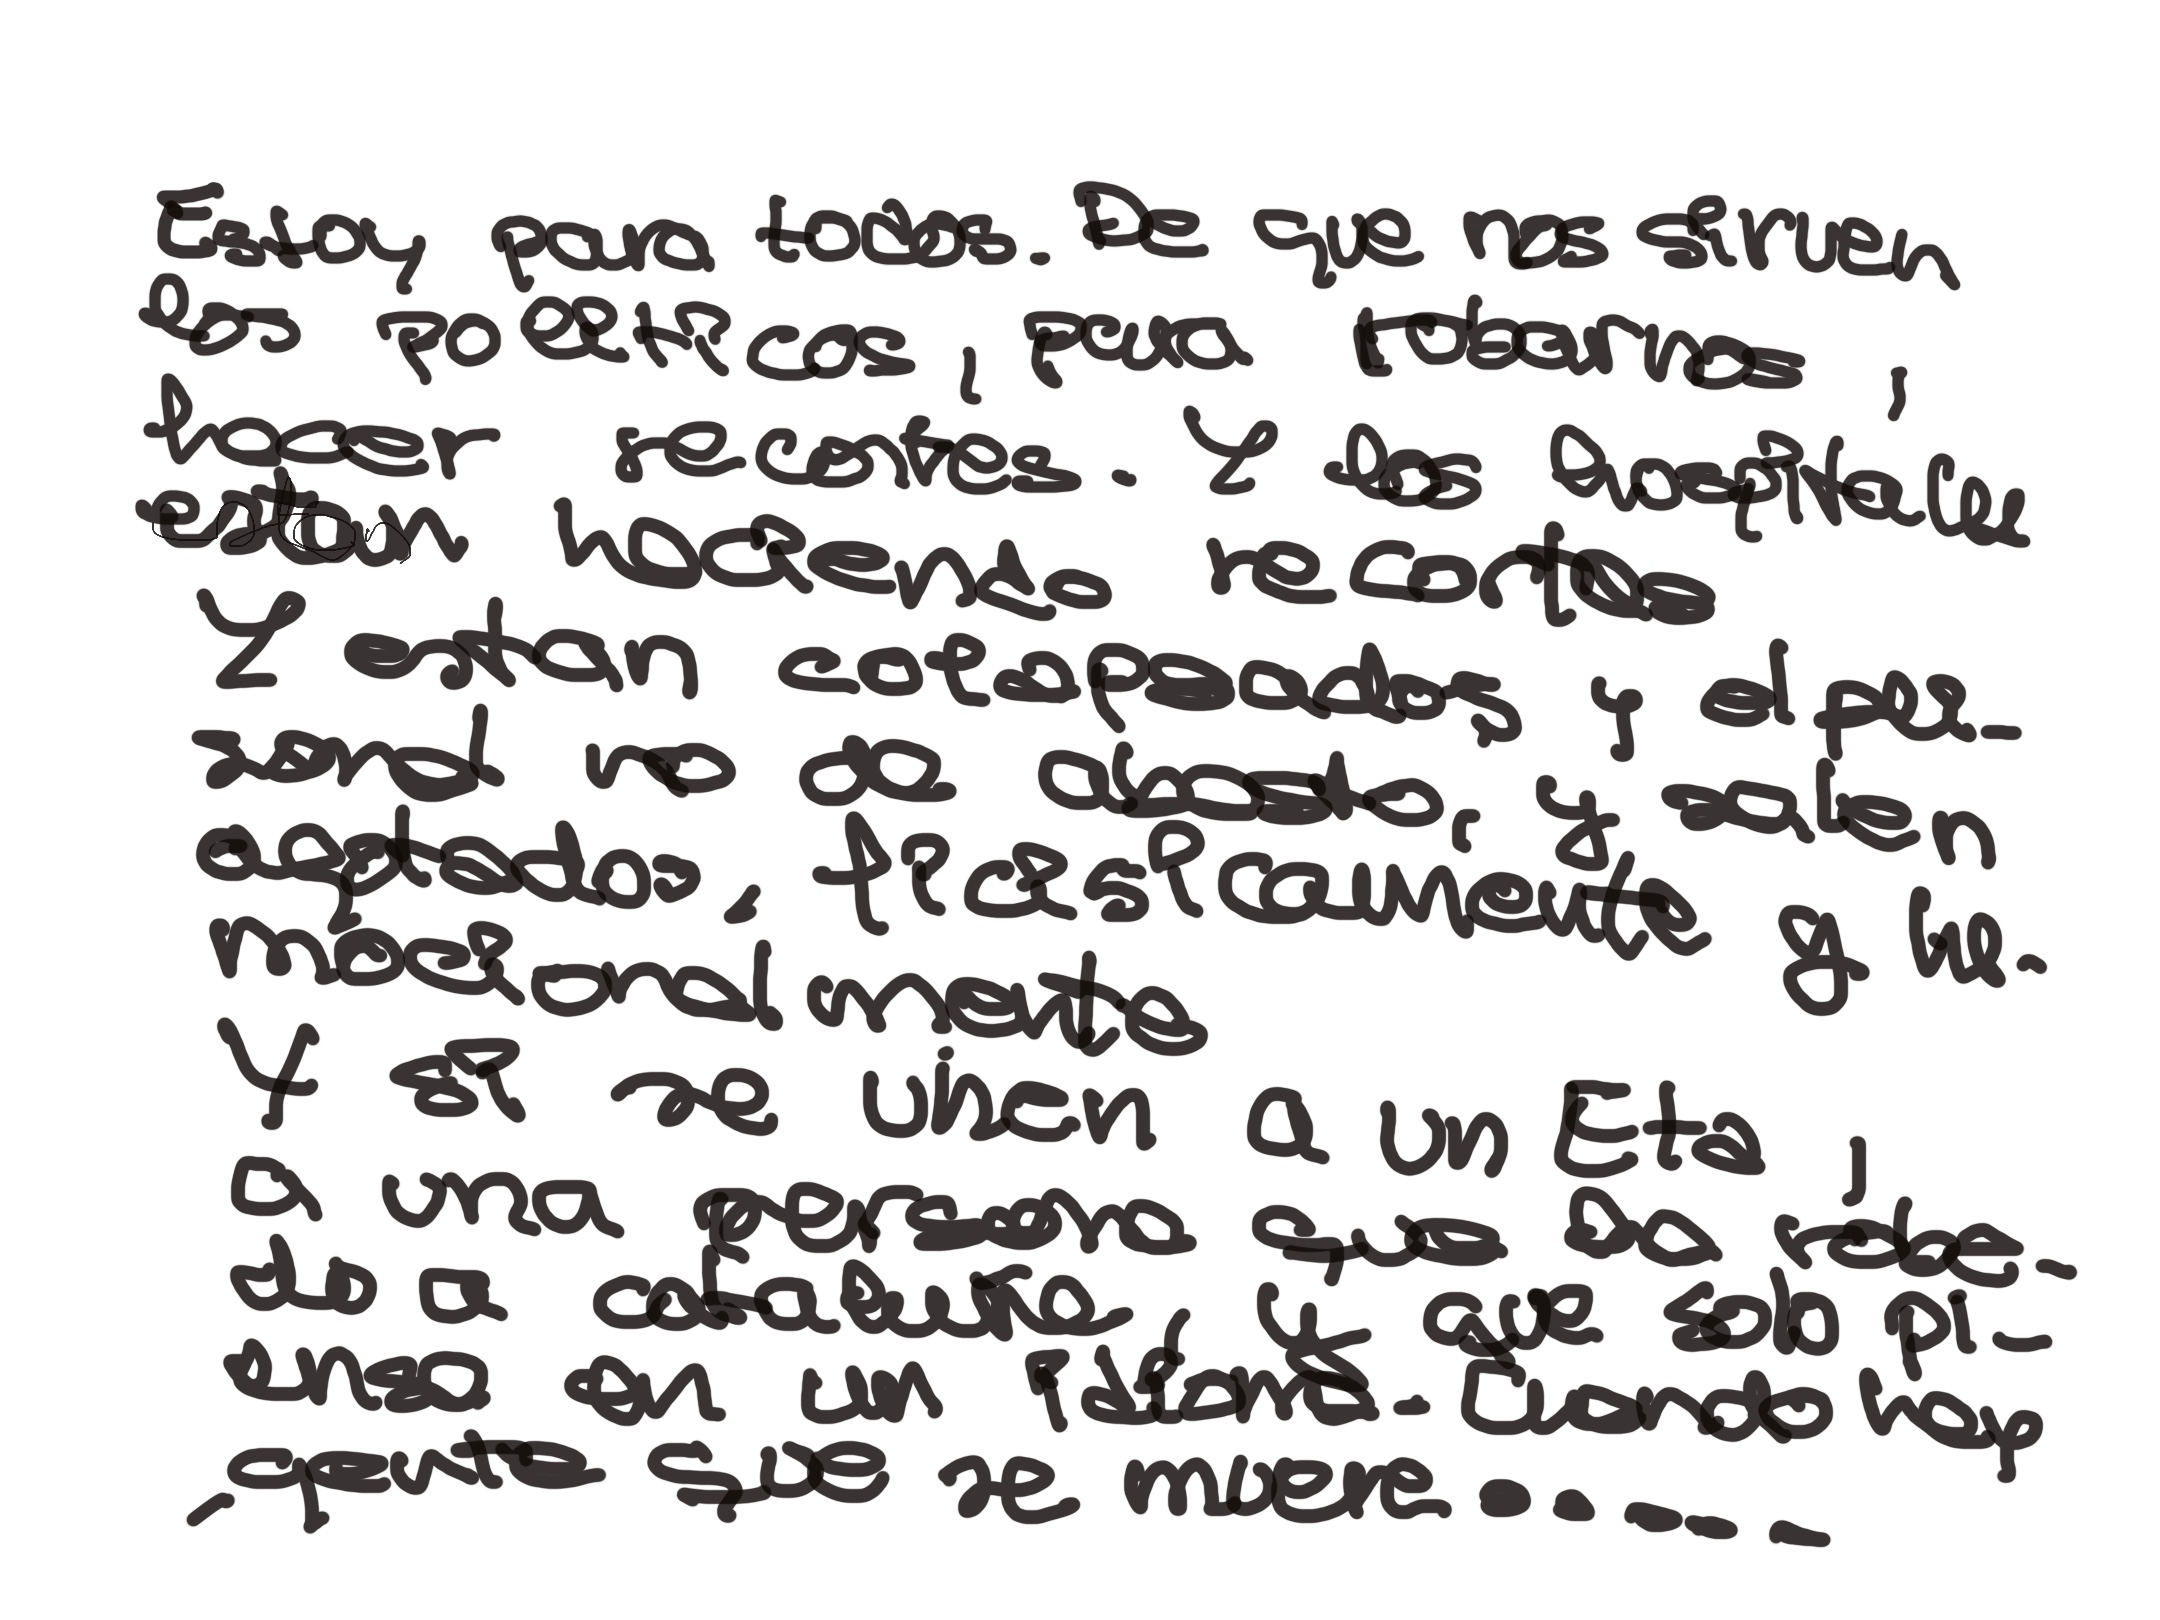 Estoy para todos. De que nos sirven
los politicos, para robarnos,
hacer recortes. Y los hospitales
estan haciendo recortes
Y estan colapsados, y el per-
sonal no da abasto, y salen
agotados, ficasicamente y he-
mocionalmente
Y si se unen a un Eta,
a una persona que Da rode-
do a cataluña, y que solo pi-
ensa en un idioma. Cuando hay
gente que se muere.....